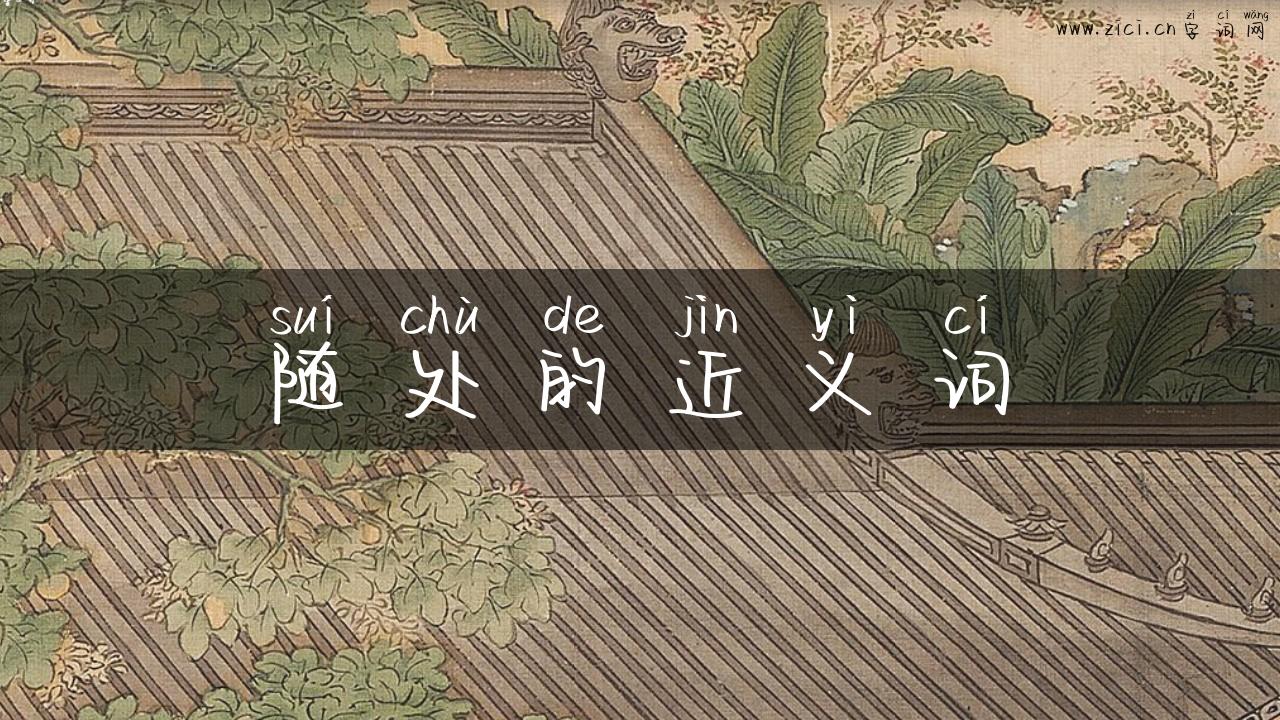 zì cí wǎng
www.zici.cn 字词网
suí chù de jìn yì cí
随处的近义词